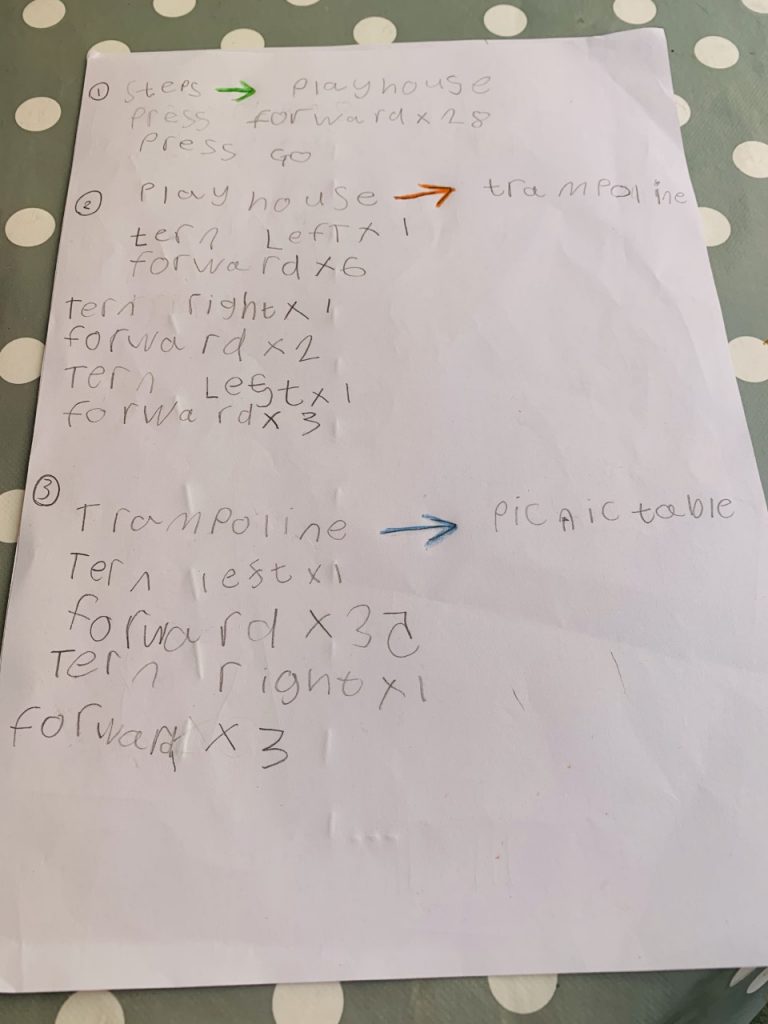 ① Steps → Playhouse
Press forward x 28
Press Go
② Playhouse → trampoline
tern Left x 1
forward x 6
Tern right x 1
forward x 2
Tern Left x 1
forward x 3
③ Trampoline → Picnic table
Tern left x 1
forward x 35
Tern right x 1
forward x 3